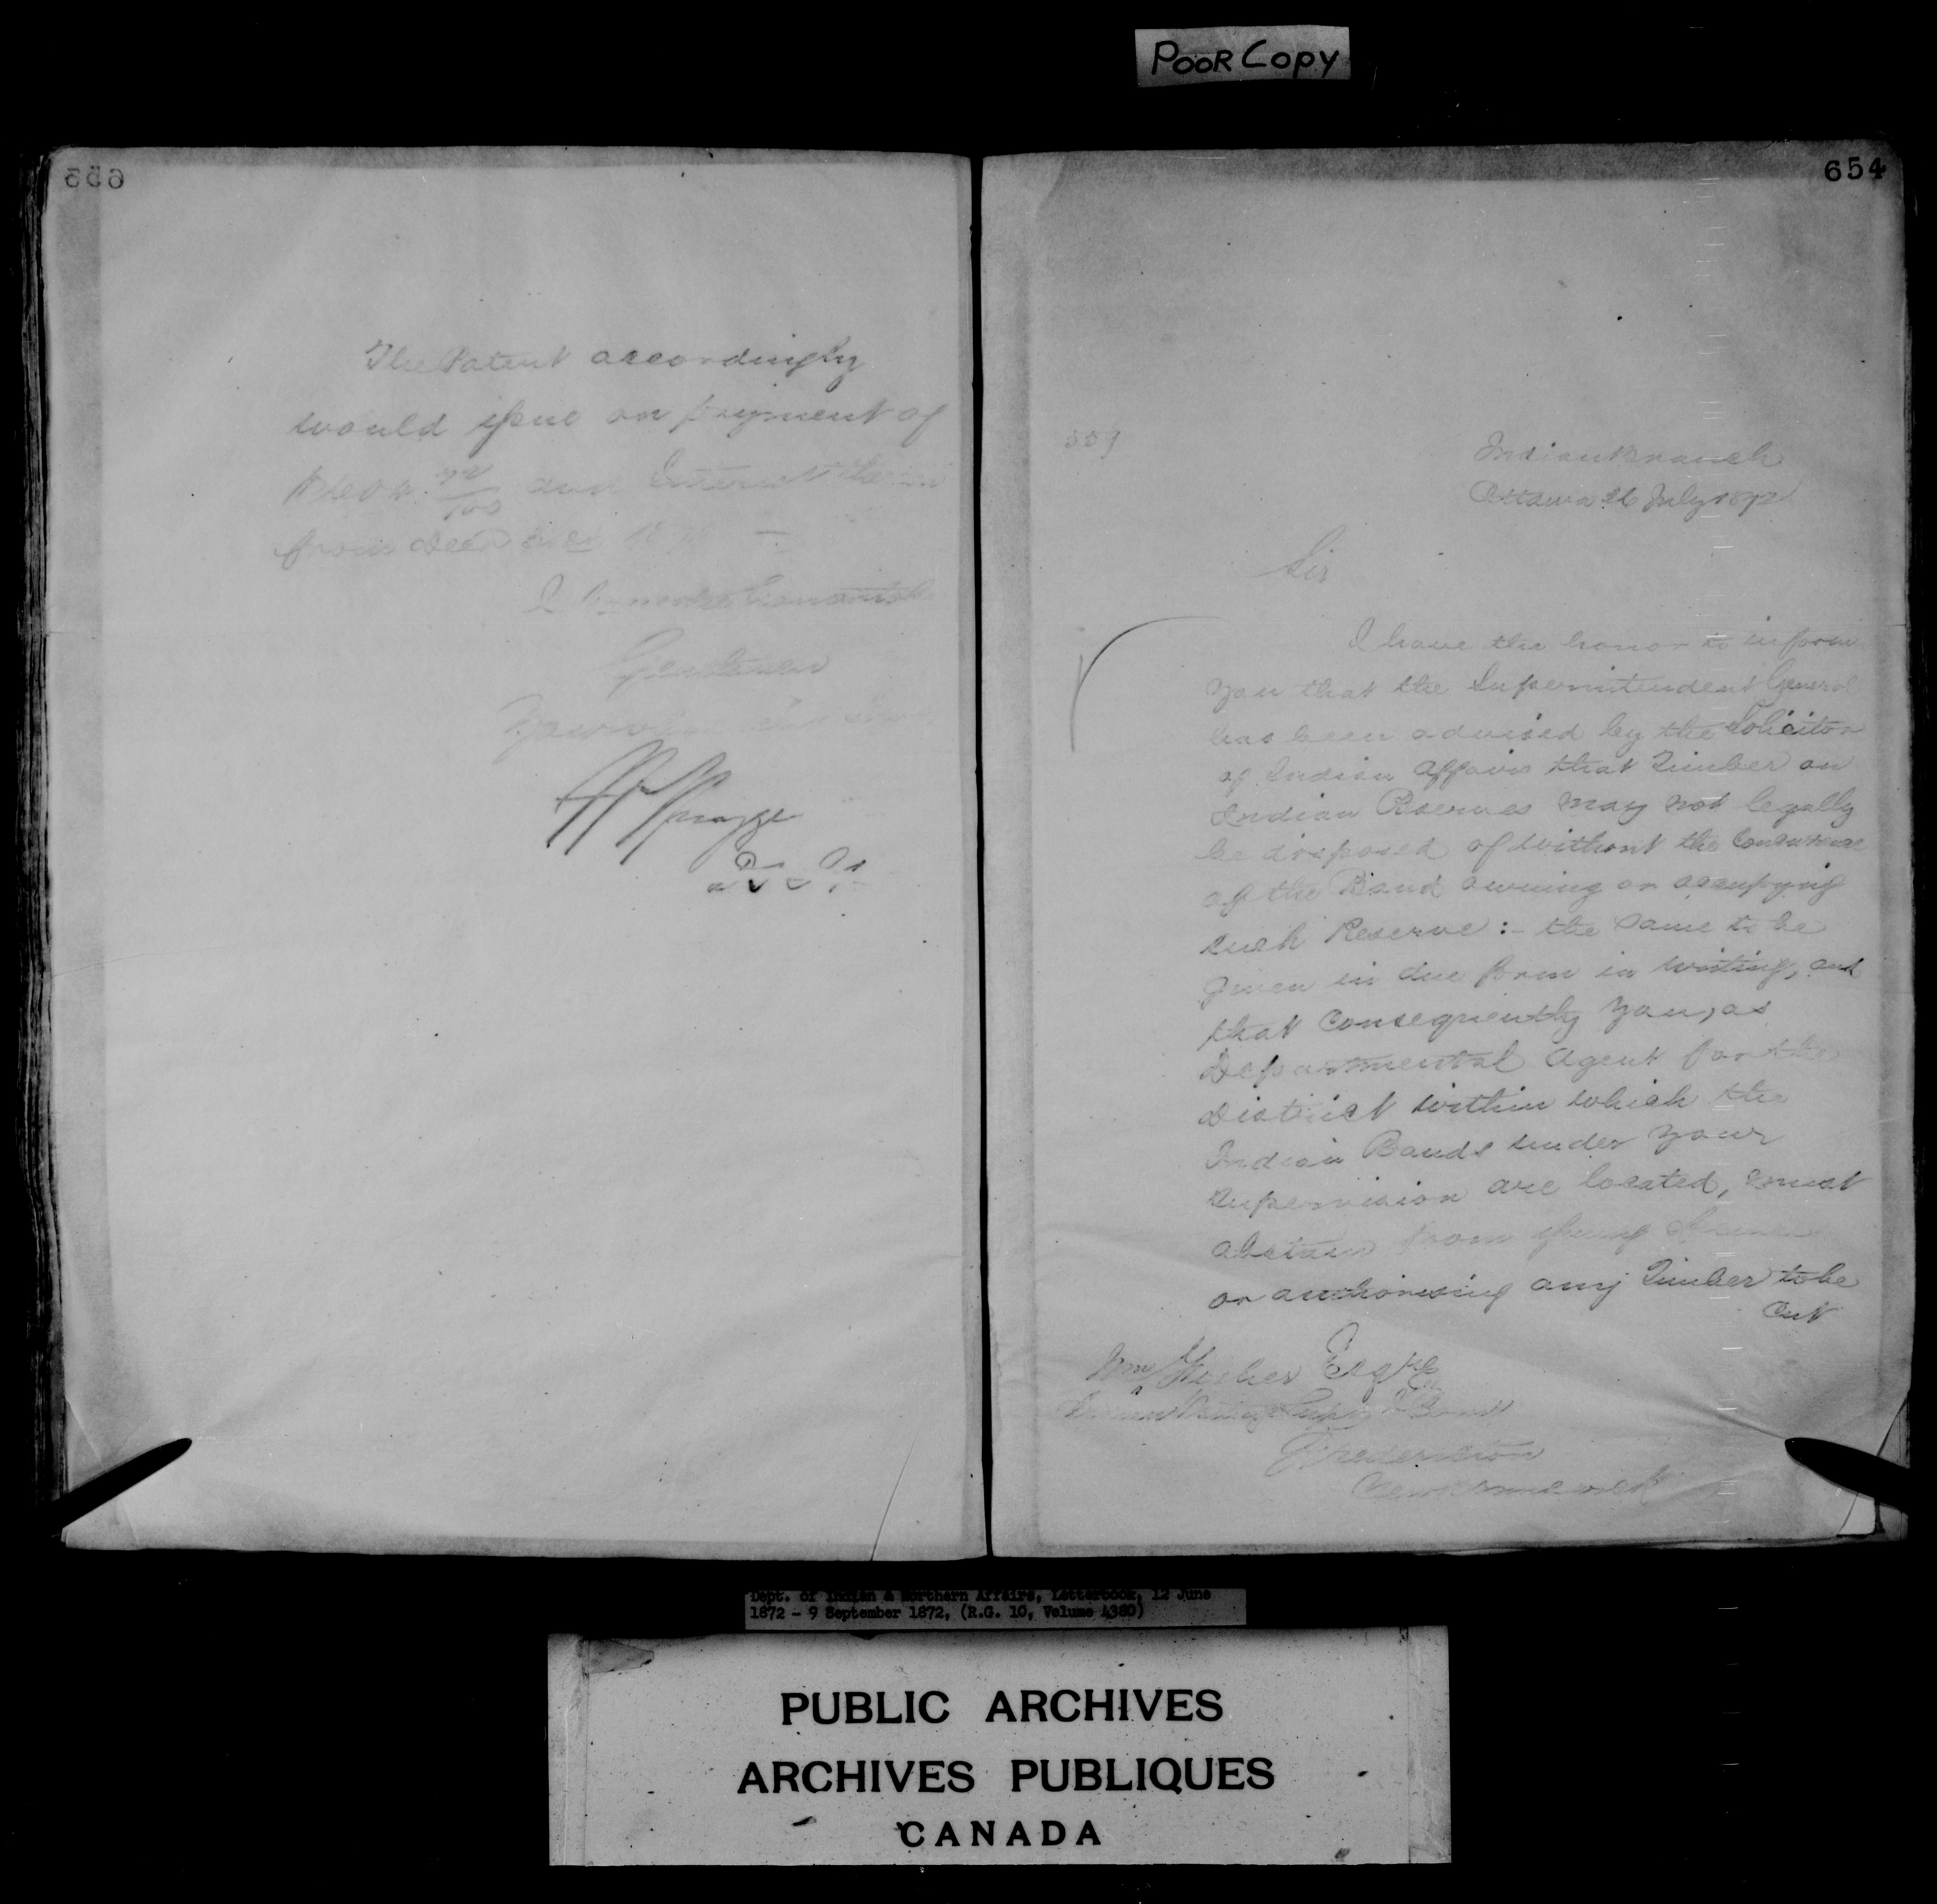 POOR COPY
The Patent accordingly
would issue on payment of
and Interest
from
I have the honor to be
Gentlemen
Your
Spragge
654
559
Indian Branch
Ottawa 26 July 1872
Sir
I have the honor to inform
you that the Superintendent General
has been advised by the Solicitor
of Indian Affairs that Timber on
Indian Reserves may not legally
be disposed of without the Concurrence
of the Band owning or occupying
such Reserve :- the same to be
given in due form in writing, and
that consequently you, as
Departmental Agent for the
District within which the
Indian Bands under your
supervision are located, must
abstain from issuing Licenses
or authorising any Timber to be
Cut
Wm Esqre
Fredericton
New Brunswick
Dept. of Indian & Northern Affairs, Letterbook, 12 June
1872 - 9 September 1872, (R.G. 10, Volume 4380)
PUBLIC ARCHIVES
ARCHIVES PUBLIQUES
CANADA